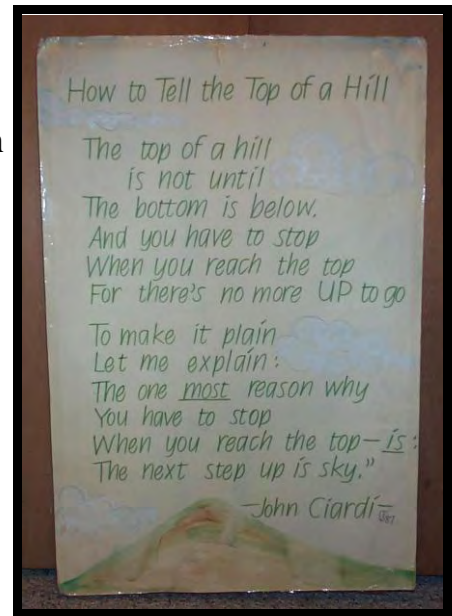 How to Tell the Top of a Hill
The top of a hill
is not until
The bottom is below.
And you have to stop
When you reach the top
For there's no more UP to go
To make it plain
Let me explain:
The one most reason why
You have to stop
When you reach the top—is:
The next step up is sky."
—John Ciardi—